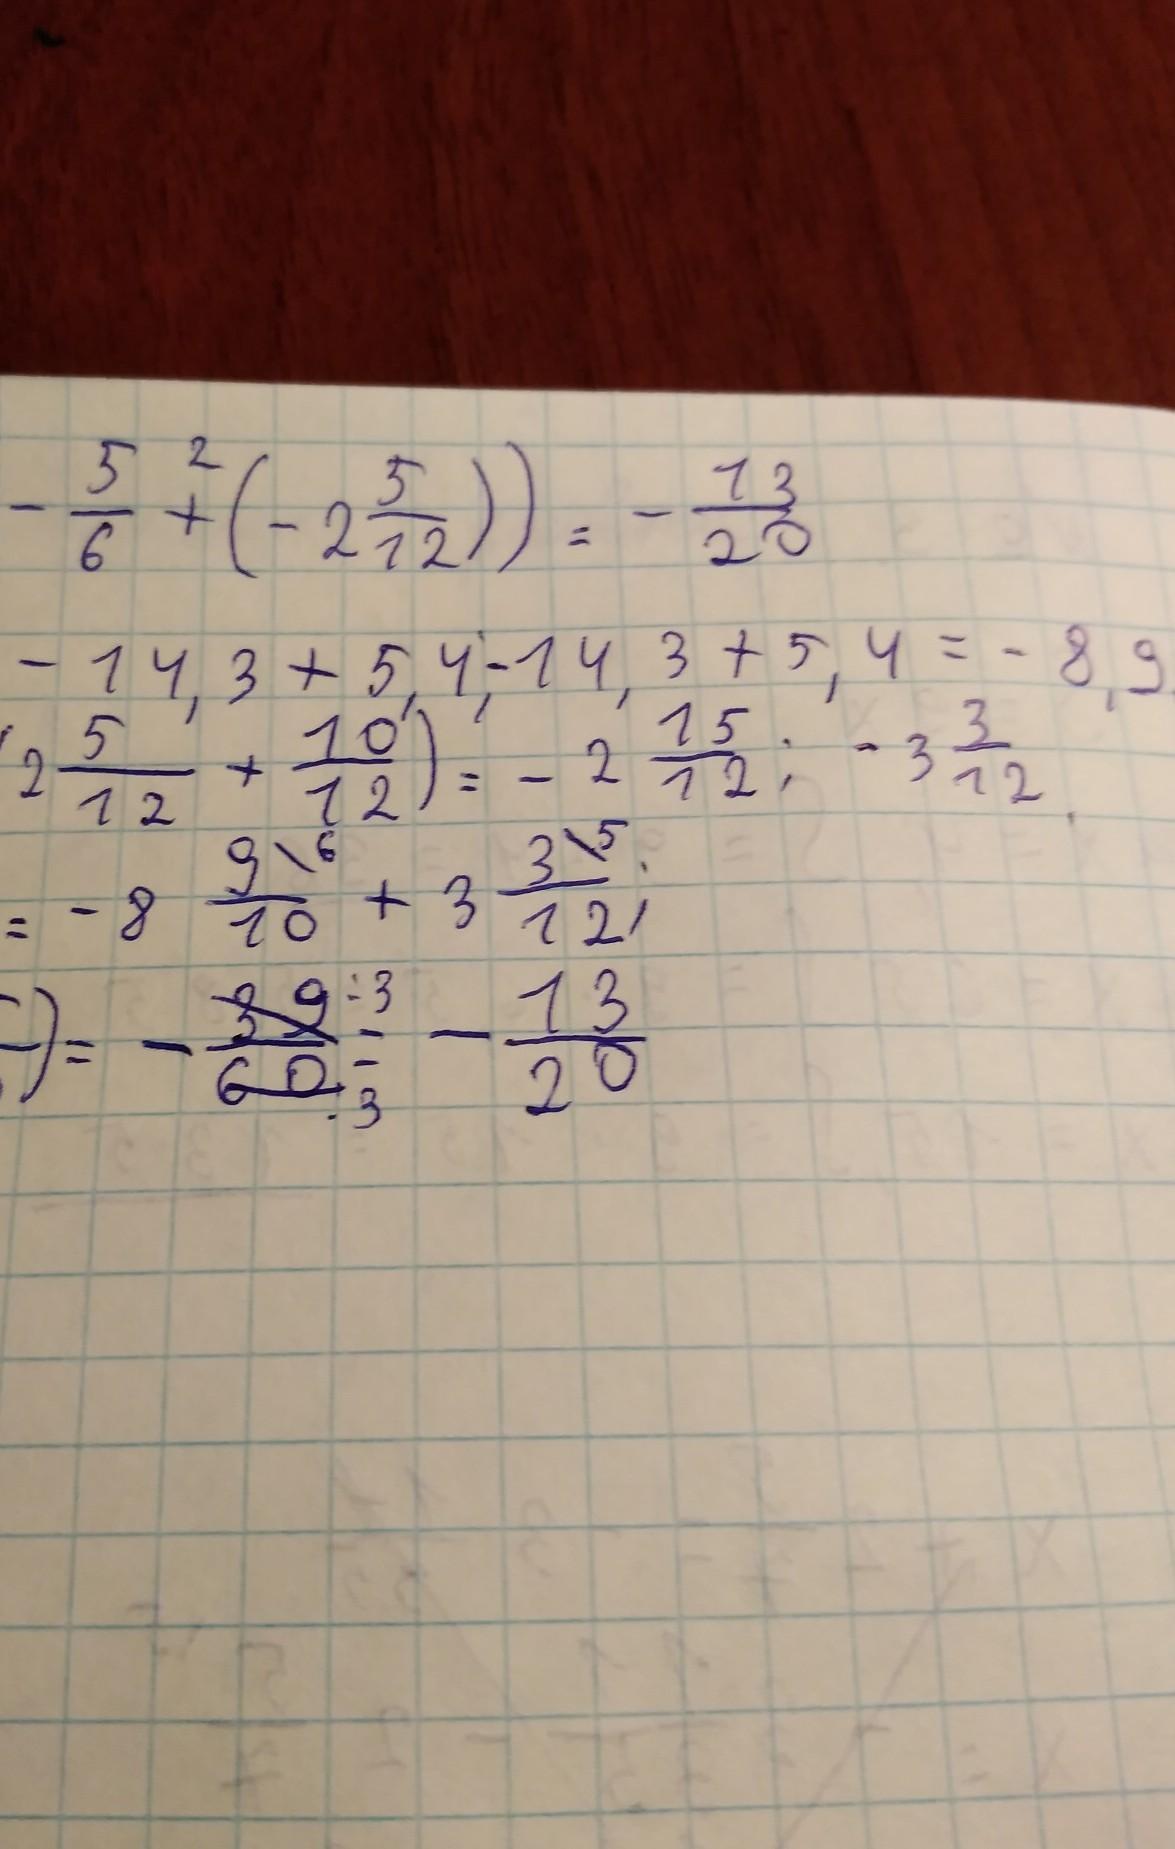 - 5/6 + ² (- 2 5/12)) = - 13/20
- 14,3 + 5,4; -14,3 + 5,4 = - 8,9
2 5/12 + 10/12) = - 2 15/12; - 3 3/12.
= - 8 9\6/10 + 3 3\5/12;
) = - 39:3/60:3 = - 13/20